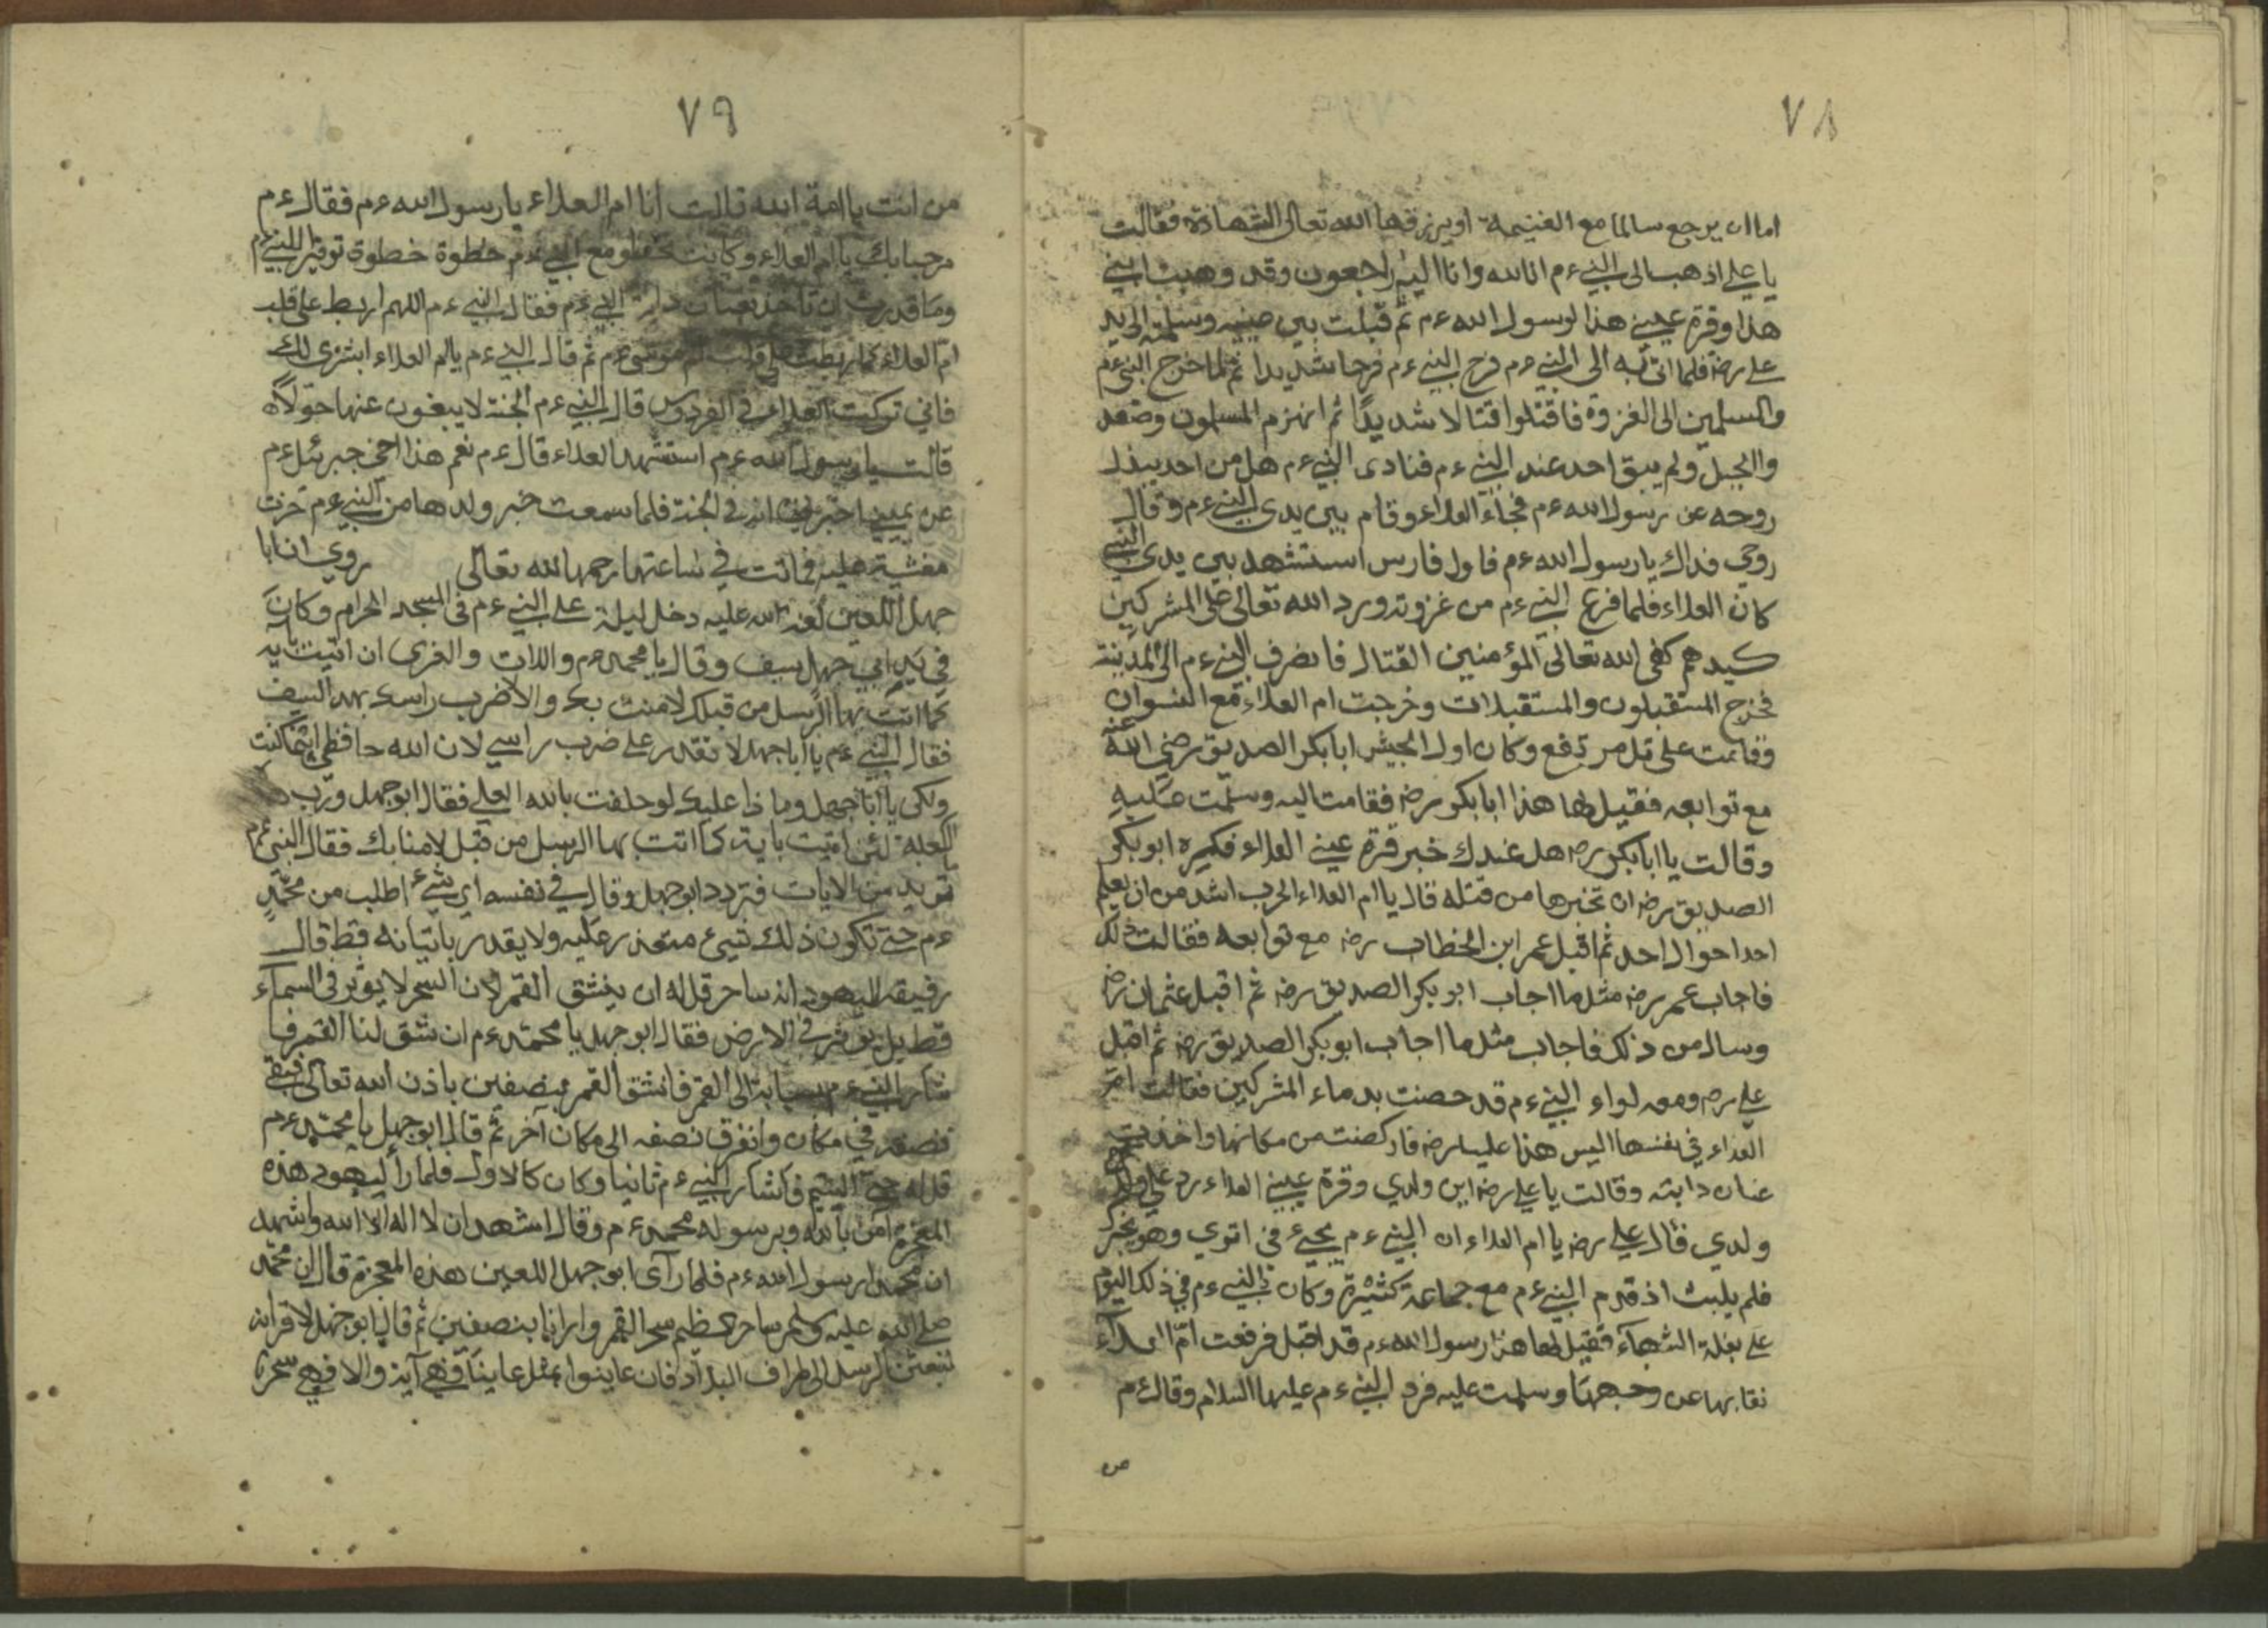 ٧٨
اما ان يرجع سالما مع الغنيمة او يرزقها الله تعالى الشهادة فقالت
يا علي اذهب الى النبي ءم انا لله وانا اليه راجعون وقد وهبت ابني
هذا وقرة عيني هذا لرسول الله ءم ثم قبلت بين عينيه وسلمته الى يد
علي رضه فلما اتى به الى النبي ءم فرح النبي ءم فرحا شديدا ثم لما خرج النبي ءم
والمسلمين الى الغزوة فاقتتلوا قتالا شديدًا ثم انهزم المسلمون وصعد
والجبل ولم يبق احد عند النبي ءم فنادى النبي ءم هل من احد يبذل
روحه عن رسول الله ءم فجاء العلاء وقام بين يدي النبي ءم وقال
روحي فداك يا رسول الله ءم فاول فارس استشهد بين يدي النبي
كان العلاء فلما فرغ النبي ءم من غزوته ورد الله تعالى على المشركين
كيدهم كفى الله تعالى المؤمنين القتال فانصرف النبي ءم الى المدينة
فخرج المستقبلون والمستقبلات وخرجت ام العلاء مع النسوان
وقامت على تل مرتفع وكان اول الجيش ابا بكر الصديق رضي الله عنه
مع توابعه فقيل لها هذا ابا بكر رضه فقامت اليه وسلمت عليه
وقالت يا ابا بكر رضه هل عندك خبر قرة عيني العلاء فكره ابو بكر
الصديق رضه ان تخبرها من قتله قال يا ام العلاء الحرب اشد من ان يعلم
احد احوال احد ثم اقبل عمر ابن الخطاب رضه مع توابعه فقالت ذلك
فاجاب عمر رضه مثل ما اجاب ابو بكر الصديق رضه ثم اقبل عثمان رضه
وسال من ذلك فاجاب مثل ما اجاب ابو بكر الصديق رضه ثم اقبل
علي رضه ومعه لواء النبي ءم قد حصنت بدماء المشركين فقالت ام
العلاء في نفسها اليس هذا عليا رضه فاركضت من مكانها واخذت
عنان دابته وقالت يا علي رضه اين ولدي وقرة عيني العلاء رد علي
ولدي قال علي رضه يا ام العلاء ان النبي ءم يجيء في اثري وهو يخبرك
فلم يلبث اذ قدم النبي ءم مع جماعة كثيرة وكان النبي ءم في ذلك اليوم
على بغلة الشهباء فقيل لها هذا رسول الله ءم قد اقبل فرفعت ام العلاء
نقابها عن وجهها وسلمت عليه فرد النبي ءم عليها السلام وقال ءم
من
٧٩
من انت يا امة الله قالت انا ام العلاء يا رسول الله ءم فقال ءم
مرحبا بك يا ام العلاء وكانت تخطو مع النبي ءم خطوة خطوة توقيرا للنبي ءم
وما قدرت ان تاخذ بعنان دابة النبي ءم فقال النبي ءم اللهم اربط على قلب
ام العلاء كما ربطت على قلب ام موسى ءم ثم قال النبي ءم يا ام العلاء ابشري لك
فاني تركت العلاء في الفردوس قال النبي ءم الجنة لا يبغون عنها حولاً
قالت يا رسول الله ءم استشهد العلاء قال ءم نعم هذا اخي جبرئيل ءم
عن يميني اخبرني انه في الجنة فلما سمعت خبر ولدها من النبي ءم خرت
مغشية عليه فماتت في ساعتها رحمها الله تعالى روي ان ابا
جهل اللعين لعنة الله عليه دخل ليلة على النبي ءم في المسجد الحرام وكان
في يد ابي جهل سيف وقال يا محمد ءم واللات والعزى ان اتيت باية
كما اتت بها الرسل من قبلك لامنت بك والا ضرب راسك بهذا السيف
فقال النبي ءم يا ابا جهل لا تقدر على ضرب راسي لان الله حافظي اينما كنت
ولكن يا ابا جهل وما ذا عليك لو حلفت بالله العلي فقال ابو جهل ورب
الكعبة لئن اتيت باية كما اتت بها الرسل من قبل لامنا بك فقال النبي ءم
تريد من الايات فتردد ابو جهل وقال في نفسه اي شيء اطلب من محمد
ءم حتى تكون ذلك شيء متعذر عليه ولا يقدر باتيانه قط قال
رفيقه اليهود انه ساحر قل له ان ينشق القمر لان السحر لا يؤثر في السماء
قط بل يؤثر في الارض فقال ابو جهل يا محمد ءم ان تشق لنا القمر فا
شار النبي ءم بسبابة الى القمر فانشق القمر بنصفين باذن الله تعالى فبقي
نصفه في مكان وانفرق نصفه الى مكان آخر ثم قال ابو جهل يا محمد ءم
قل له حتى التئم فاشار النبي ءم ثانيا وكان كالاول فلما رأى اليهود هذه
المعجزة آمن بالله وبرسوله محمد ءم وقال اشهد ان لا اله الا الله واشهد
ان محمدا رسول الله ءم فلما رآى ابو جهل اللعين هذه المعجزة قال ان محمد
صلى الله عليه وسلم ساحر عظيم سحر القمر وارانا بنصفين ثم قال ابو جهل لاقرانه
لنبعثن الرسل الى اطراف البلاد فان عاينوا مثل عاينا فهي آية والا فهي سحر